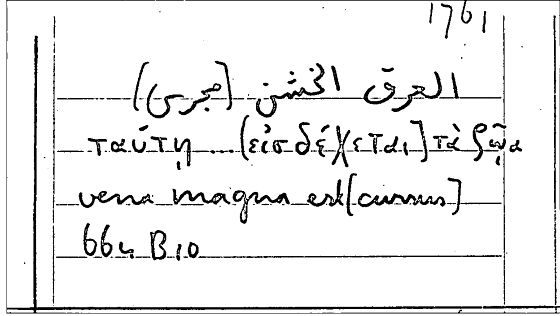 1761
العرق الخشن (مجرى)
ταύτῃ ... (εἰσδέχεται] τὰ ζῷα
vena magna est [cursus]
664 B 10